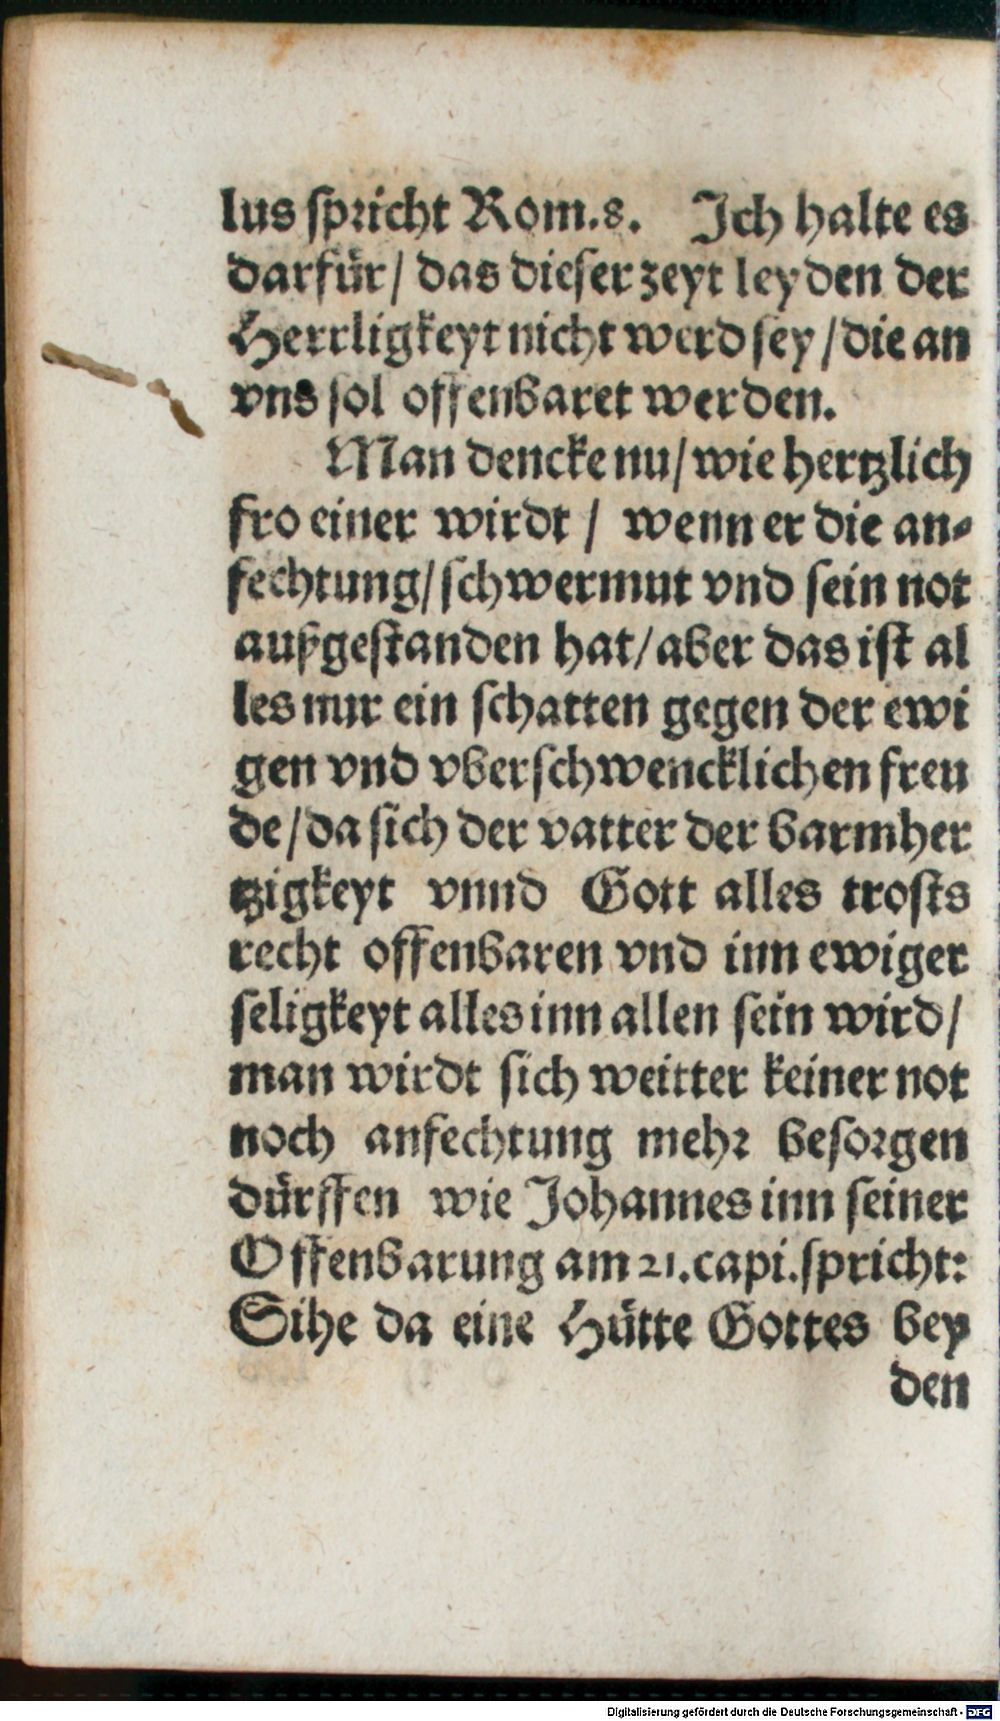 lus spricht Rom.8. Ich halte es
darfür/ das dieser zeyt leyden der
Herrligkeyt nicht werd sey/ die an
vns sol offenbaret werden.
Man dencke nu/ wie hertzlich
fro einer wirdt/ wenn er die an-
fechtung/ schwermut vnd sein not
außgestanden hat/ aber das ist al
les nur ein schatten gegen der ewi
gen vnd vberschwencklichen freu
de/ da sich der vatter der barmher
tzigkeyt vnnd Gott alles trosts
recht offenbaren vnd inn ewiger
seligkeyt alles inn allen sein wird/
man wirdt sich weitter keiner not
noch anfechtung mehr besorgen
dürffen wie Johannes inn seiner
Offenbarung am 21. capi. spricht:
Sihe da eine Hütte Gottes bey
den
Digitalisierung gefördert durch die Deutsche Forschungsgemeinschaft - DFG